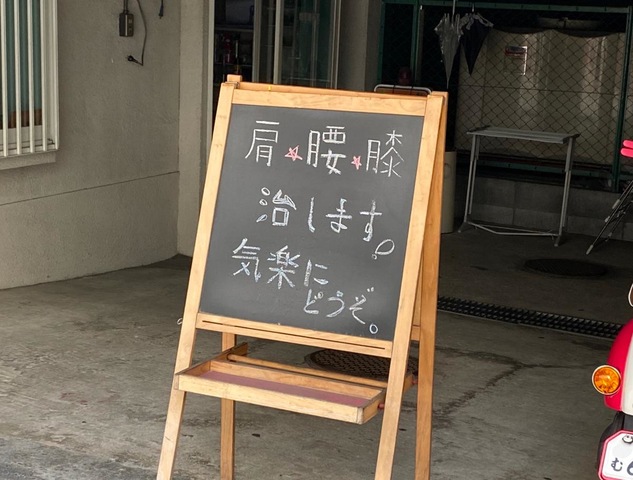 肩★腰★膝
治します。
気楽に
どうぞ。
む